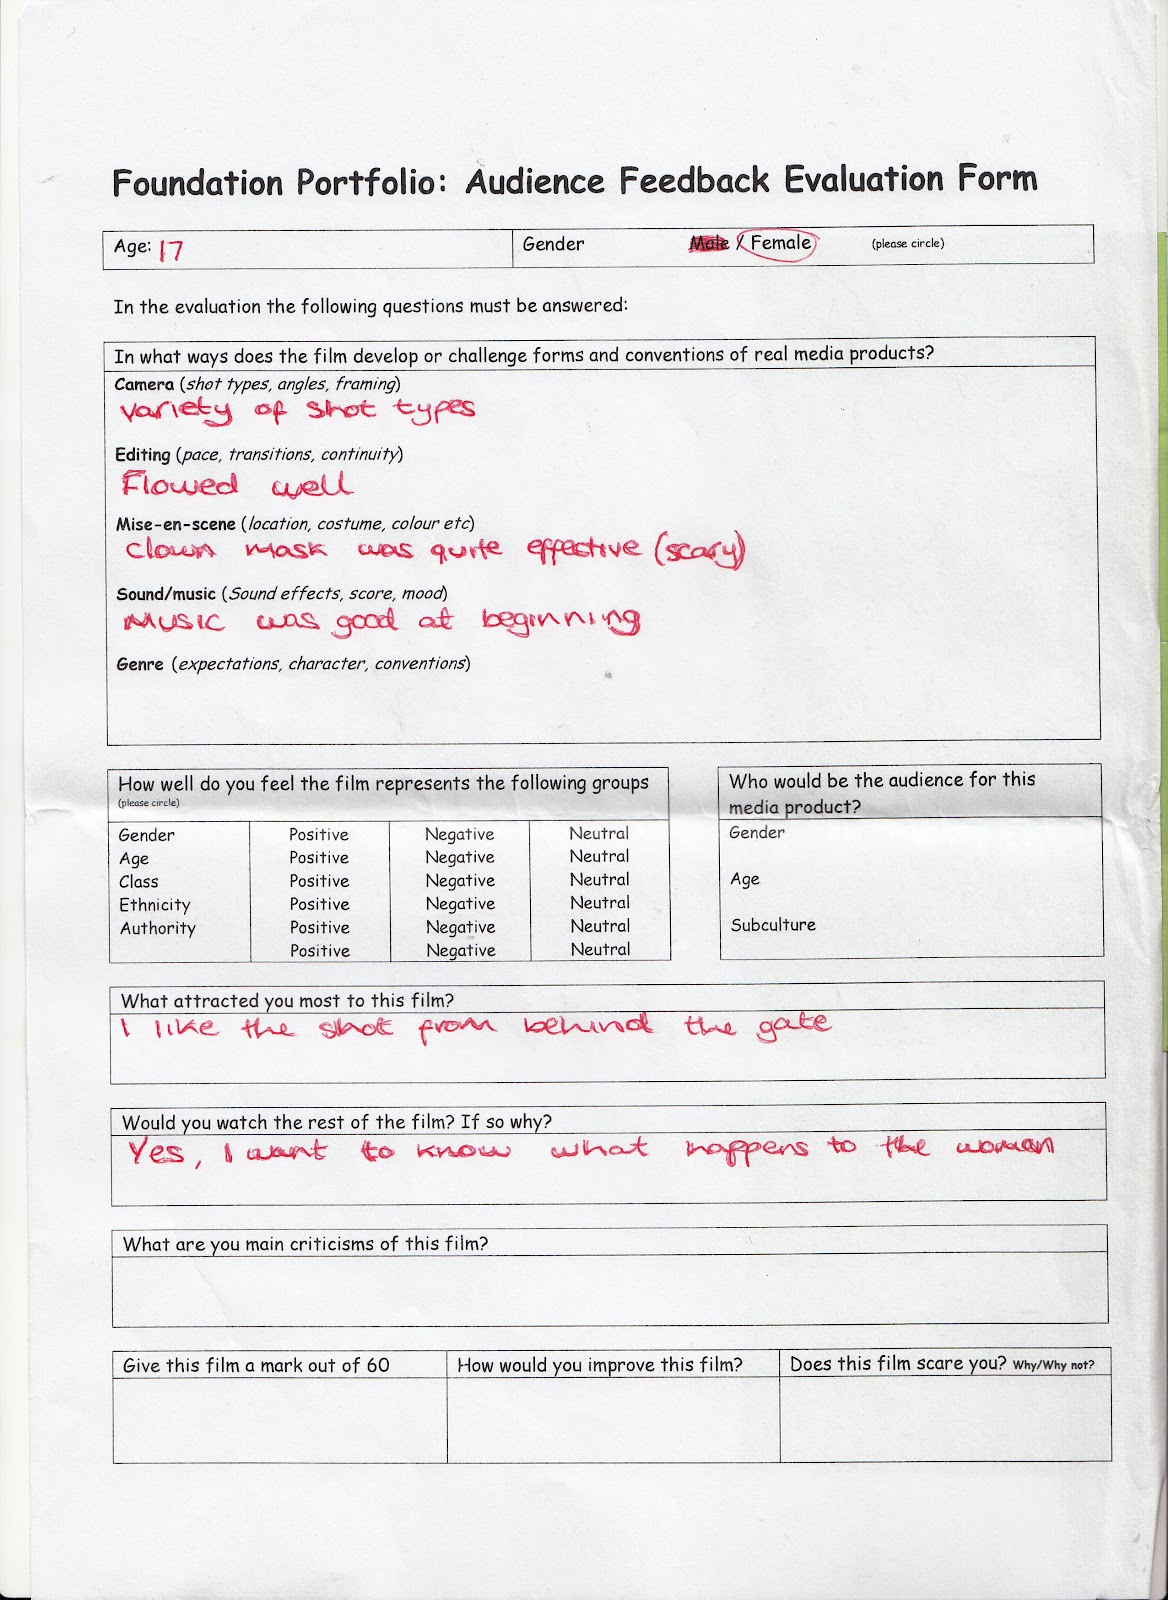 Foundation Portfolio: Audience Feedback Evaluation Form
Age: 17 Gender Male / Female (please circle)
In the evaluation the following questions must be answered:
In what ways does the film develop or challenge forms and conventions of real media products?
Camera (shot types, angles, framing)
variety of shot types
Editing (pace, transitions, continuity)
Flowed well
Mise-en-scene (location, costume, colour etc)
clown mask was quite effective (scary)
Sound/music (Sound effects, score, mood)
Music was good at beginning
Genre (expectations, character, conventions)
How well do you feel the film represents the following groups
(please circle)
Gender Positive Negative Neutral
Age Positive Negative Neutral
Class Positive Negative Neutral
Ethnicity Positive Negative Neutral
Authority Positive Negative Neutral
Positive Negative Neutral
Who would be the audience for this
media product?
Gender
Age
Subculture
What attracted you most to this film?
I like the shot from behind the gate
Would you watch the rest of the film? If so why?
Yes, I want to know what happens to the woman
What are you main criticisms of this film?
Give this film a mark out of 60
How would you improve this film?
Does this film scare you? Why/Why not?